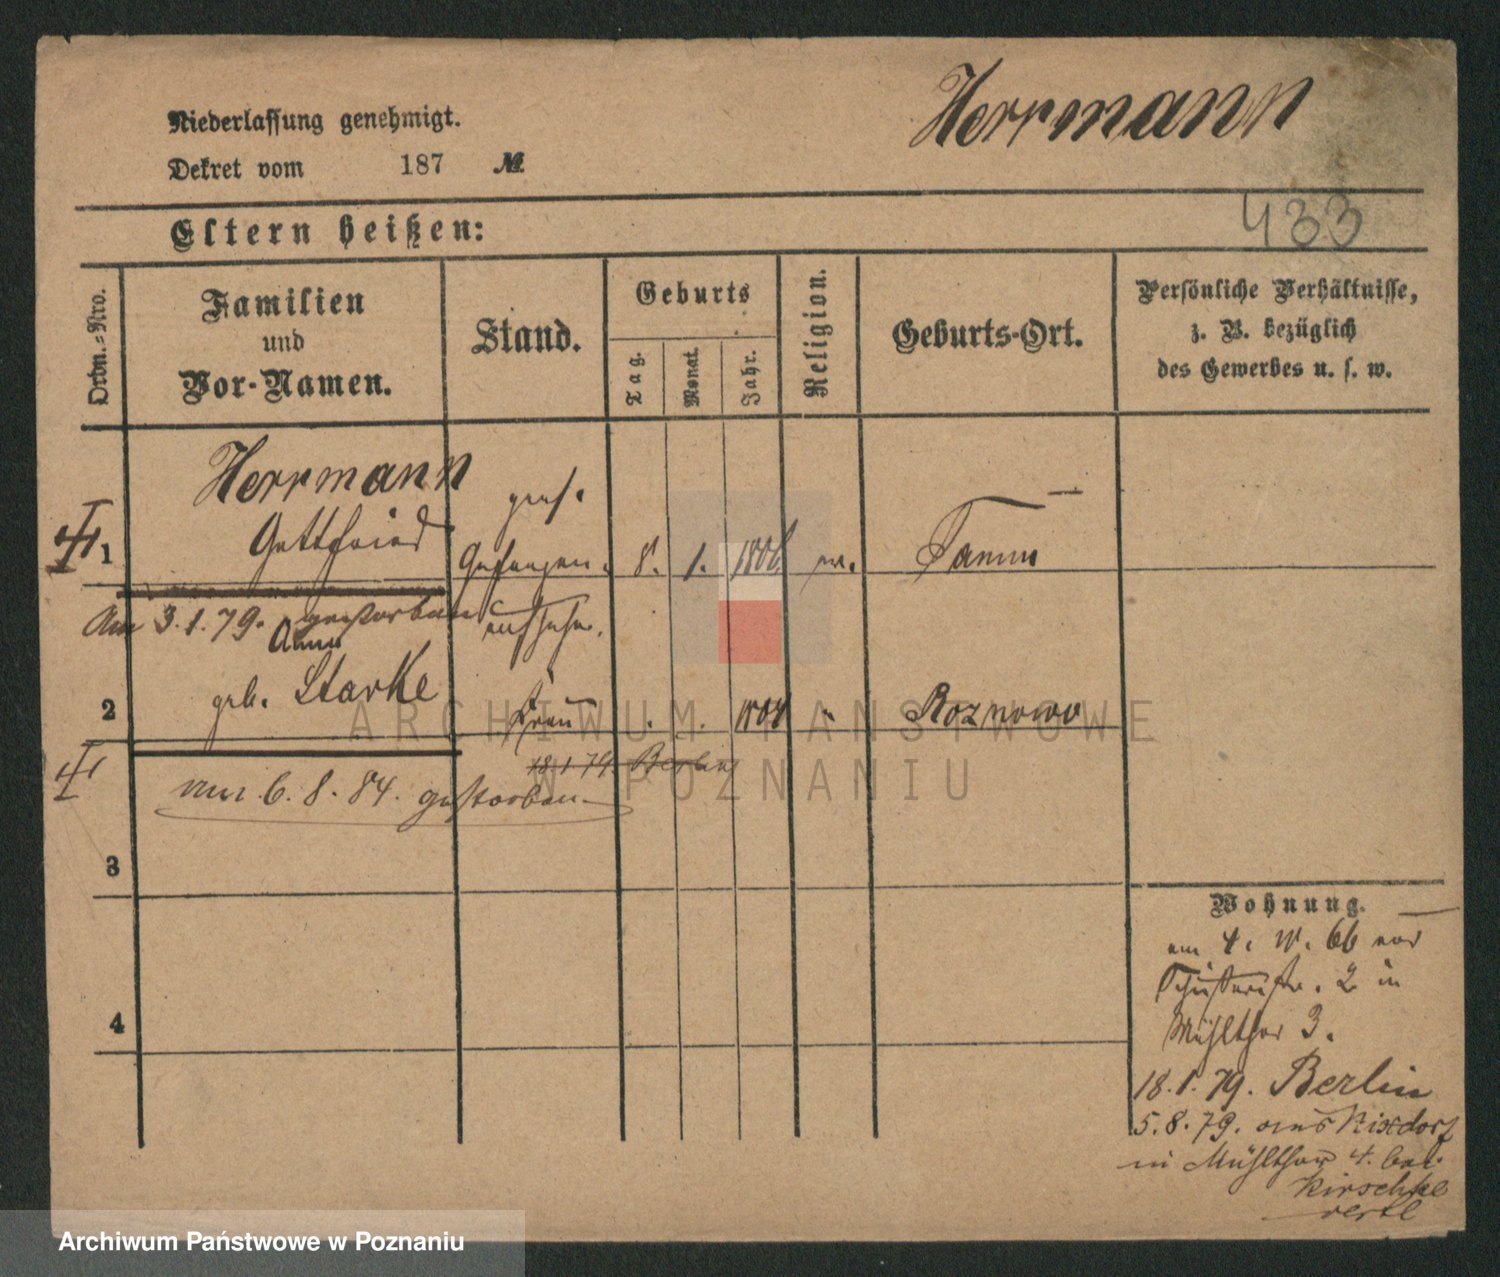 Herrmann
Niederlassung genehmigt.
Dekret vom 187 №
433
Eltern heißen:
Ordn.=Nro.
Familien
und
Vor-Namen.
Stand.
Geburts
Tag.
Monat.
Jahr.
Religion.
Geburts-Ort.
Persönliche Verhältnisse,
z. B. bezüglich
des Gewerbes u. s. w.
Herrmann
Gottfried
1
gew.
Gefangen.
aufseher.
8. 1. 1806 ev. Tamm
Am 3.1.79. gestorben
Anna
geb. Starke
2
Frau
1804 " Roznowo
18.1.79. Berlin
am 6.8.84. gestorben
3
4
Wohnung.
am 4. IV. 66 von
Schusterstr. 2 in
Mühlthor 3.
18.1.79. Berlin
5.8.79. aus Rixdorf
in Mühlthor 4. bei
Kirschke
ARCHIWUM PAŃSTWOWE
W POZNANIU
Archiwum Państwowe w Poznaniu